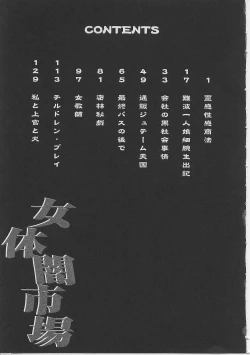 CONTENTS
1 霊感性感商法
17 難波一人娘細腕生出記
33 会社の黒社会事情
49 通販ジュテーム天国
65 最終バスの後で
81 密林秘戯
97 女教師
113 チルドレン・プレイ
129 私と上官と犬
女体闇市場